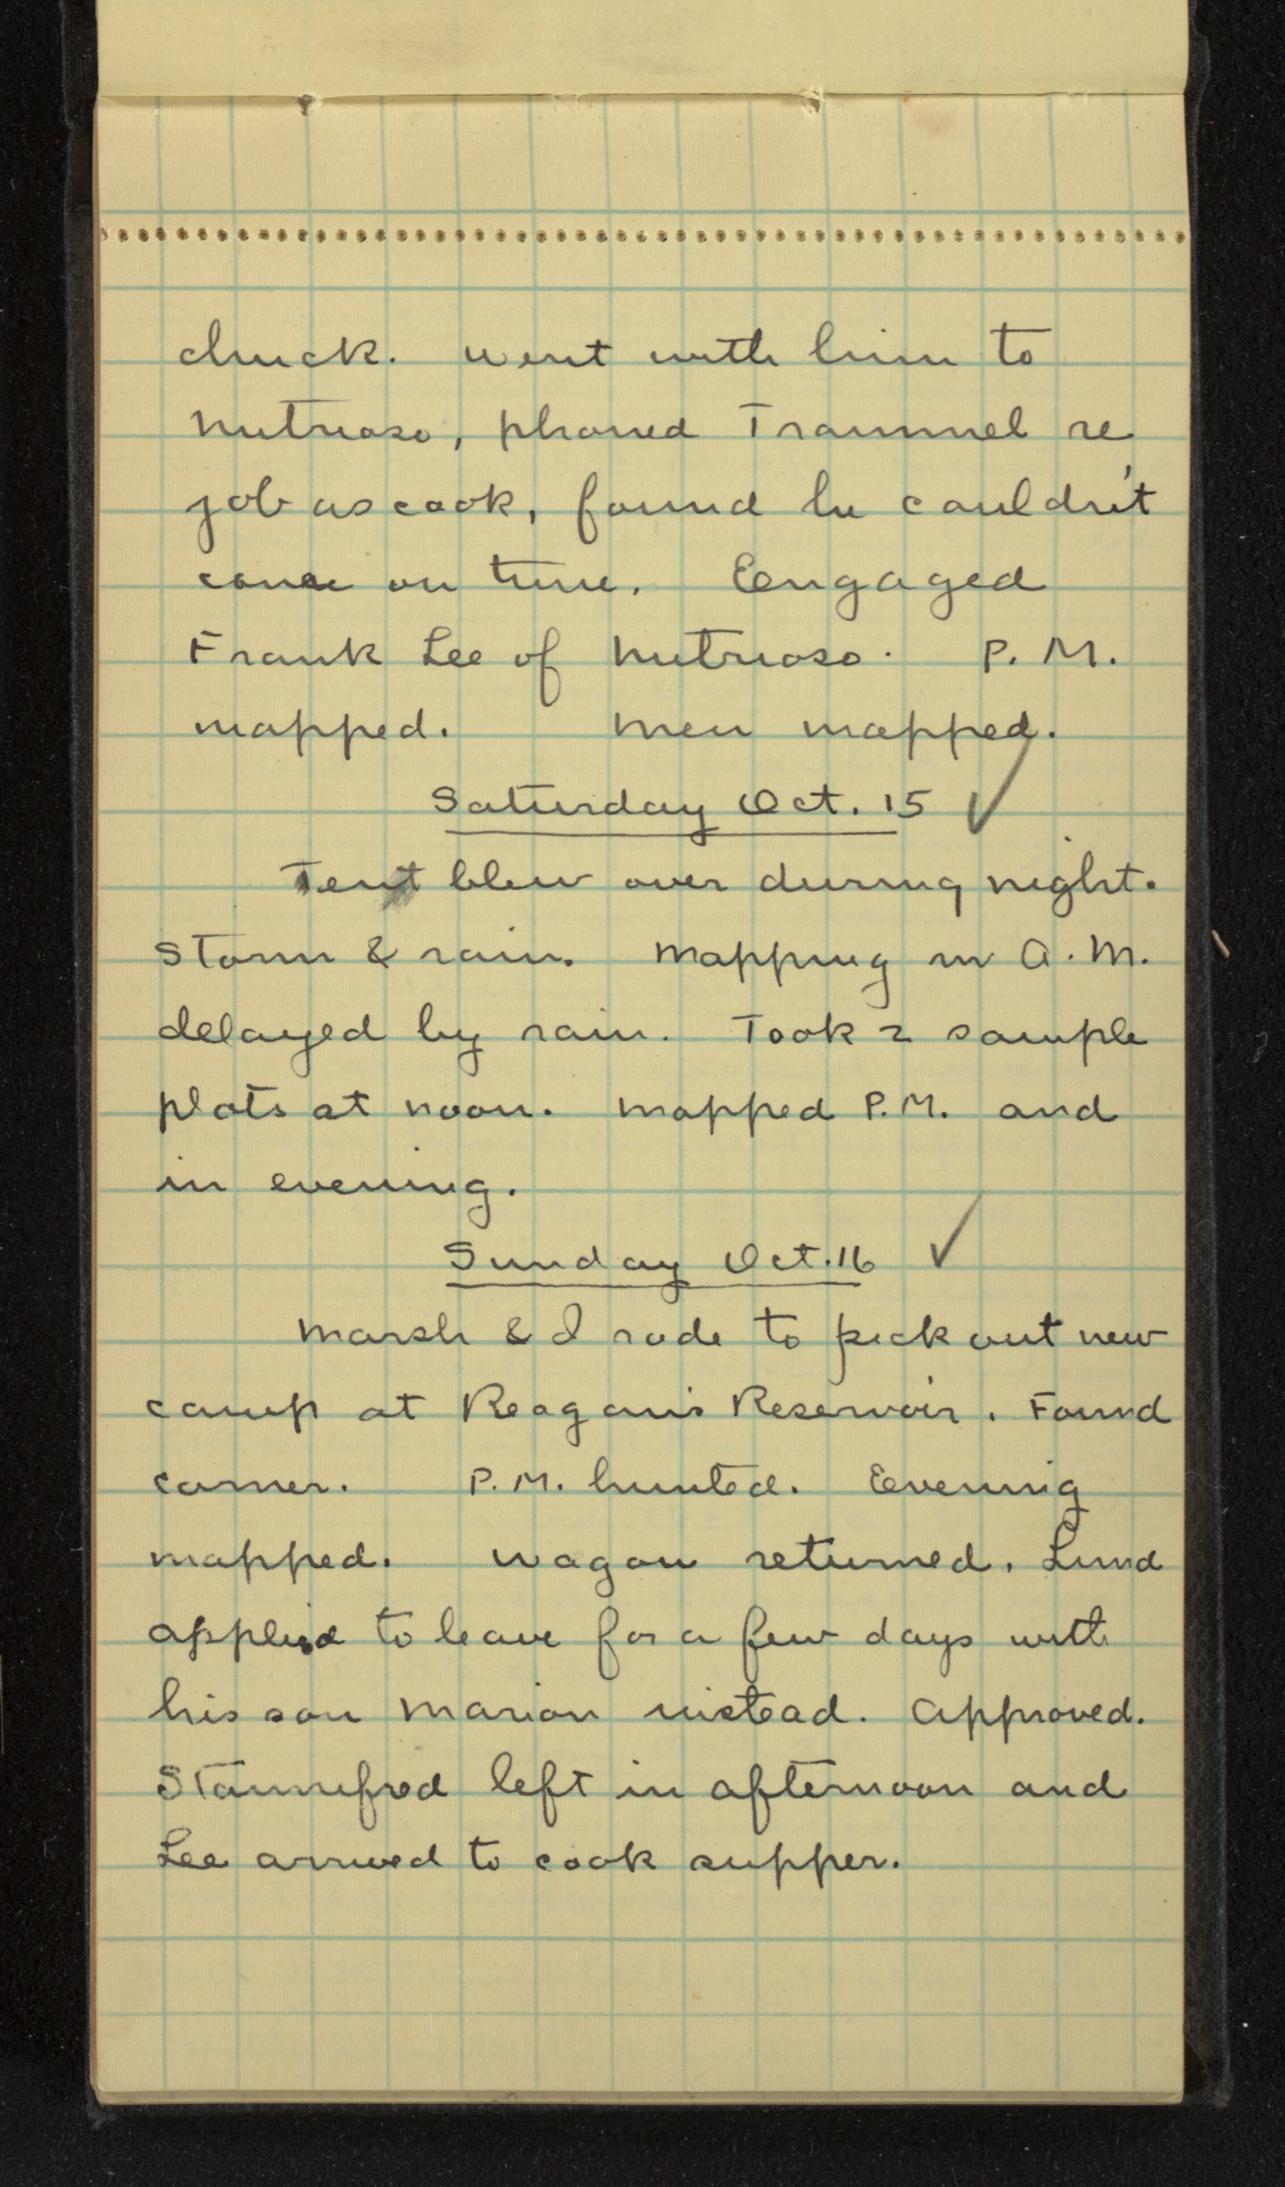 chuck. Went with him to
Nutrioso, phoned Trammel re
job as cook, found he couldn't
come on time. Engaged
Frank Lee of Nutrioso. P.M.
mapped. Men mapped.
Saturday Oct. 15 ✓
Tent blew over during night.
Storm & rain. Mapping in A.M.
delayed by rain. Took 2 sample
plots at noon. Mapped P.M. and
in evening.
Sunday Oct. 16 ✓
Marsh & I rode to pick out new
camp at Reagan's Reservoir. Found
corner. P.M. hunted. Evening
mapped. Wagon returned. Lund
applied to leave for a few days with
his son Marion instead. Approved.
left in afternoon and
Lee arrived to cook supper.